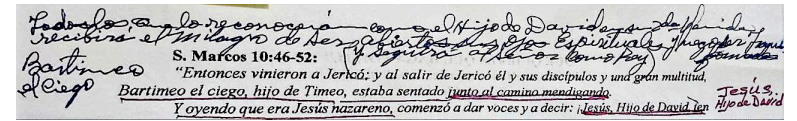 Todo los que lo reconocerán como el Hijo de David en su 2da Venida,
recibirá el Milagro de Ser Abiertos sus Ojos Espirituales, y luego
y seguirá al Señor como
Bartimeo
el Ciego
S. Marcos 10:46-52:
"Entonces vinieron a Jericó; y al salir de Jericó él y sus discípulos y una gran multitud,
Bartimeo el ciego, hijo de Timeo, estaba sentado junto al camino mendigando.
Y oyendo que era Jesús nazareno, comenzó a dar voces y a decir: ¡Jesús, Hijo de David, ten
Jesús,
Hijo de David